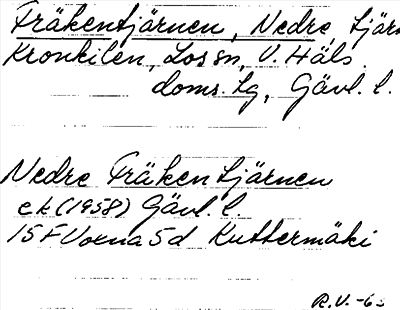 Fräkentjärnen, Nedre, tjärn
Kronkilen, Los sn, V. Häls.
doms. lg, Gävl. l.
Nedre Fräkentjärnen
ek (1958) Gävl. l.
15F Voxna 5d Kuttermäki
R.V. -63